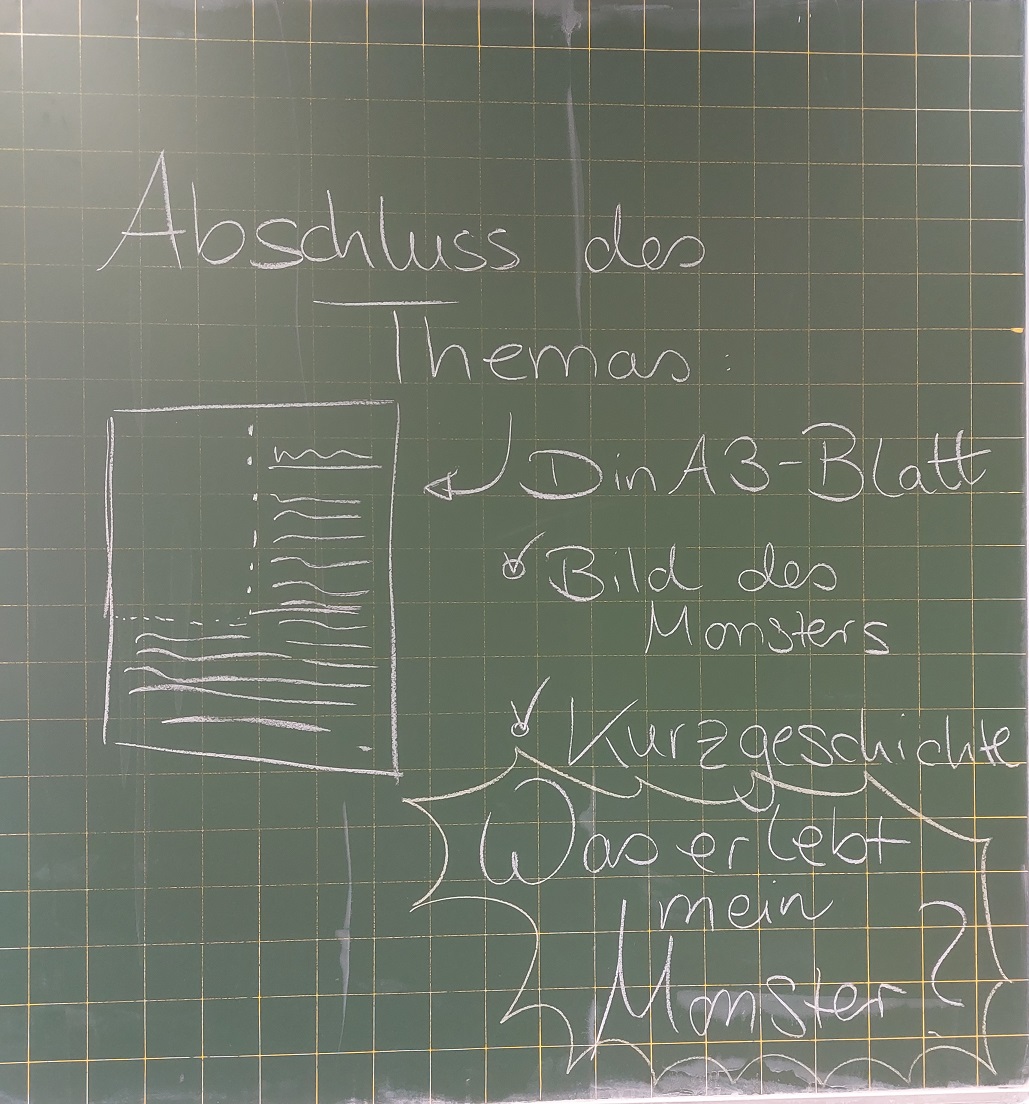 Abschluss des
Themas:
Din A3-Blatt
Bild des
Monsters
Kurzgeschichte
Was erlebt
mein
Monster?